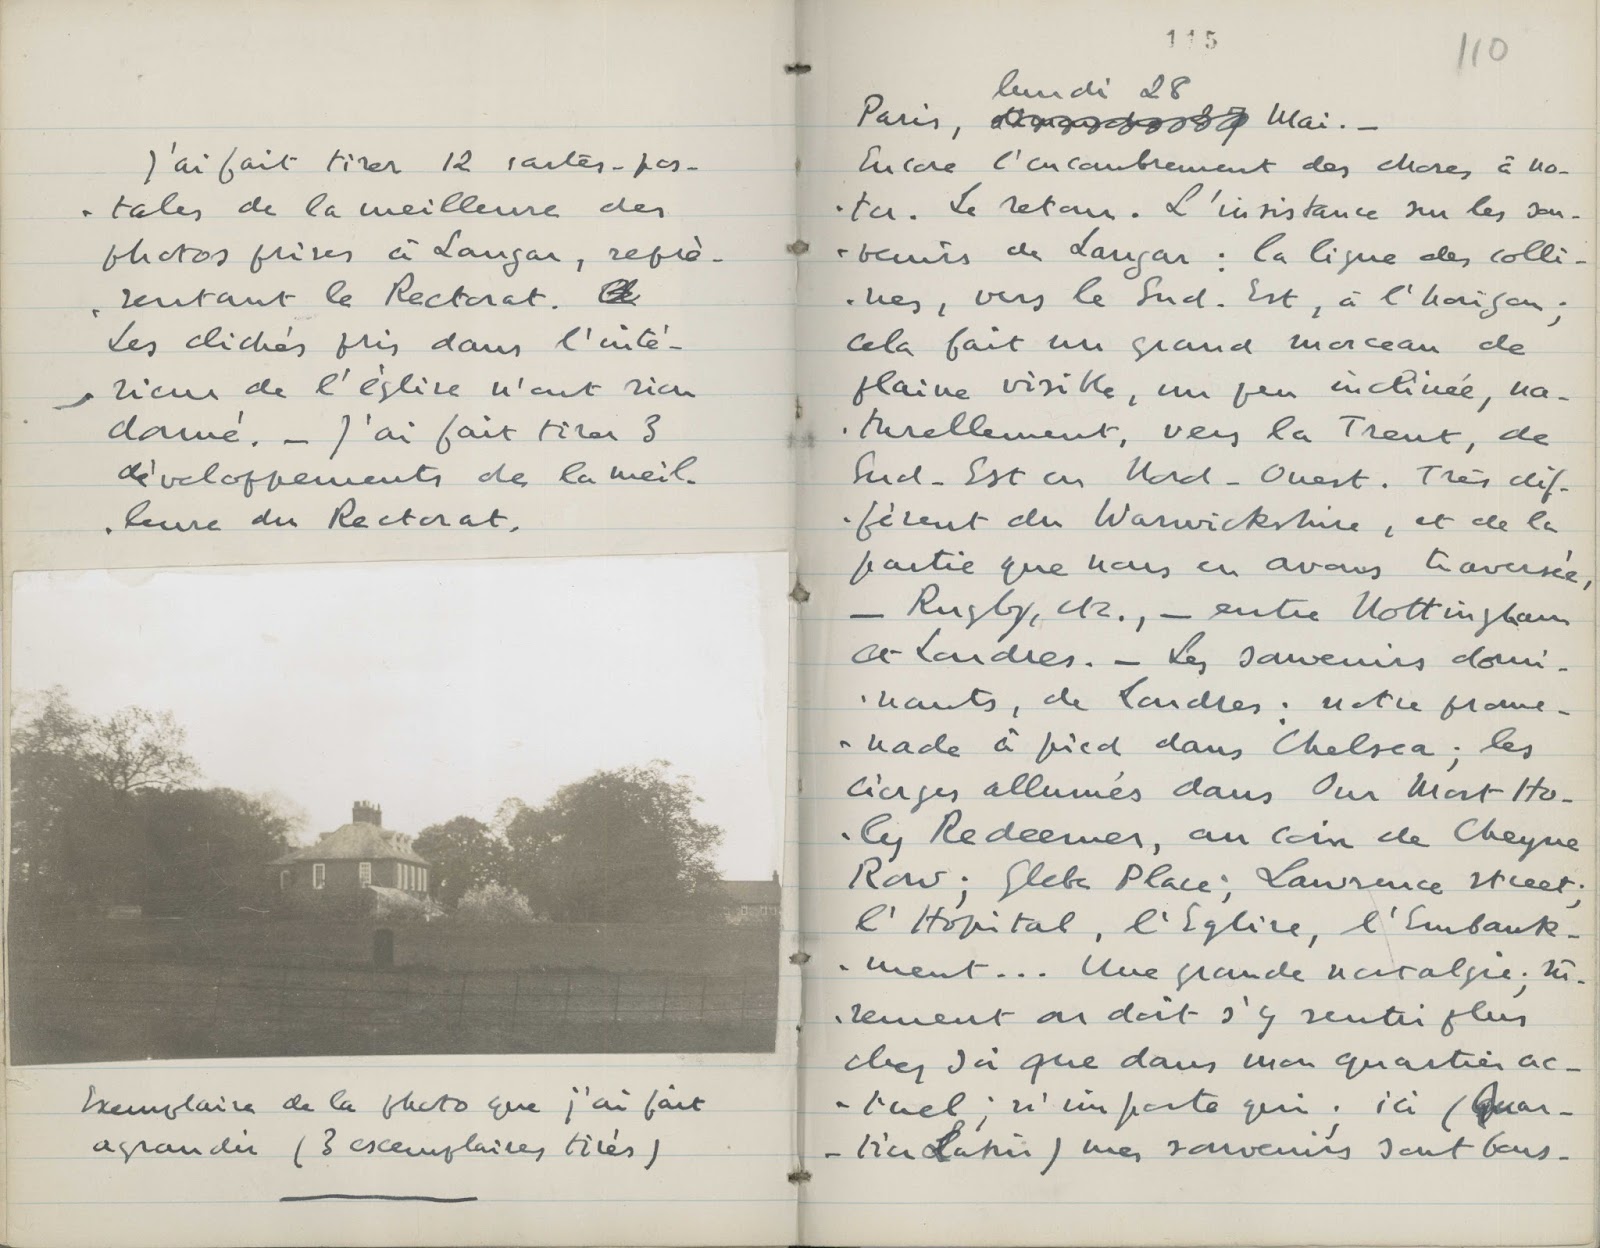 J'ai fait tirer 12 cartes-pos-
-tales de la meilleure des
photos prises à Langar, repré-
-sentant le Rectorat.
Les clichés pris dans l'inté-
-rieur de l'église n'ont rien
donné. — J'ai fait tirer 3
développements de la meil-
-leure du Rectorat.
Exemplaire de la photo que j'ai fait
agrandir (3 exemplaires tirés)
115
110
lundi 28
Paris, Mai. —
Encore l'encombrement des choses à no-
-ter. Le retour. L'insistance sur les sou-
-venirs de Langar : la ligne des colli-
-nes, vers le Sud-Est, à l'horizon ;
cela fait un grand morceau de
plaine visible, un peu inclinée, na-
-turellement, vers la Trent, de
Sud-Est en Nord-Ouest. Très dif-
-férent du Warwickshire, et de la
partie que nous en avons traversée,
— Rugby, etc., — entre Nottingham
et Londres. — Les souvenirs domi-
-nants, de Londres : notre prome-
-nade à pied dans Chelsea ; les
cierges allumés dans Our Most Ho-
-ly Redeemer, au coin de Cheyne
Row ; Glebe Place ; Lawrence street ;
l'Hôpital, l'Eglise, l'Embank-
-ment... Une grande nostalgie ; sû-
-rement on doit s'y sentir plus
chez soi que dans mon quartier ac-
-tuel ; n'importe qui ; ici (Quar-
-tier Latin) mes souvenirs sont bous-